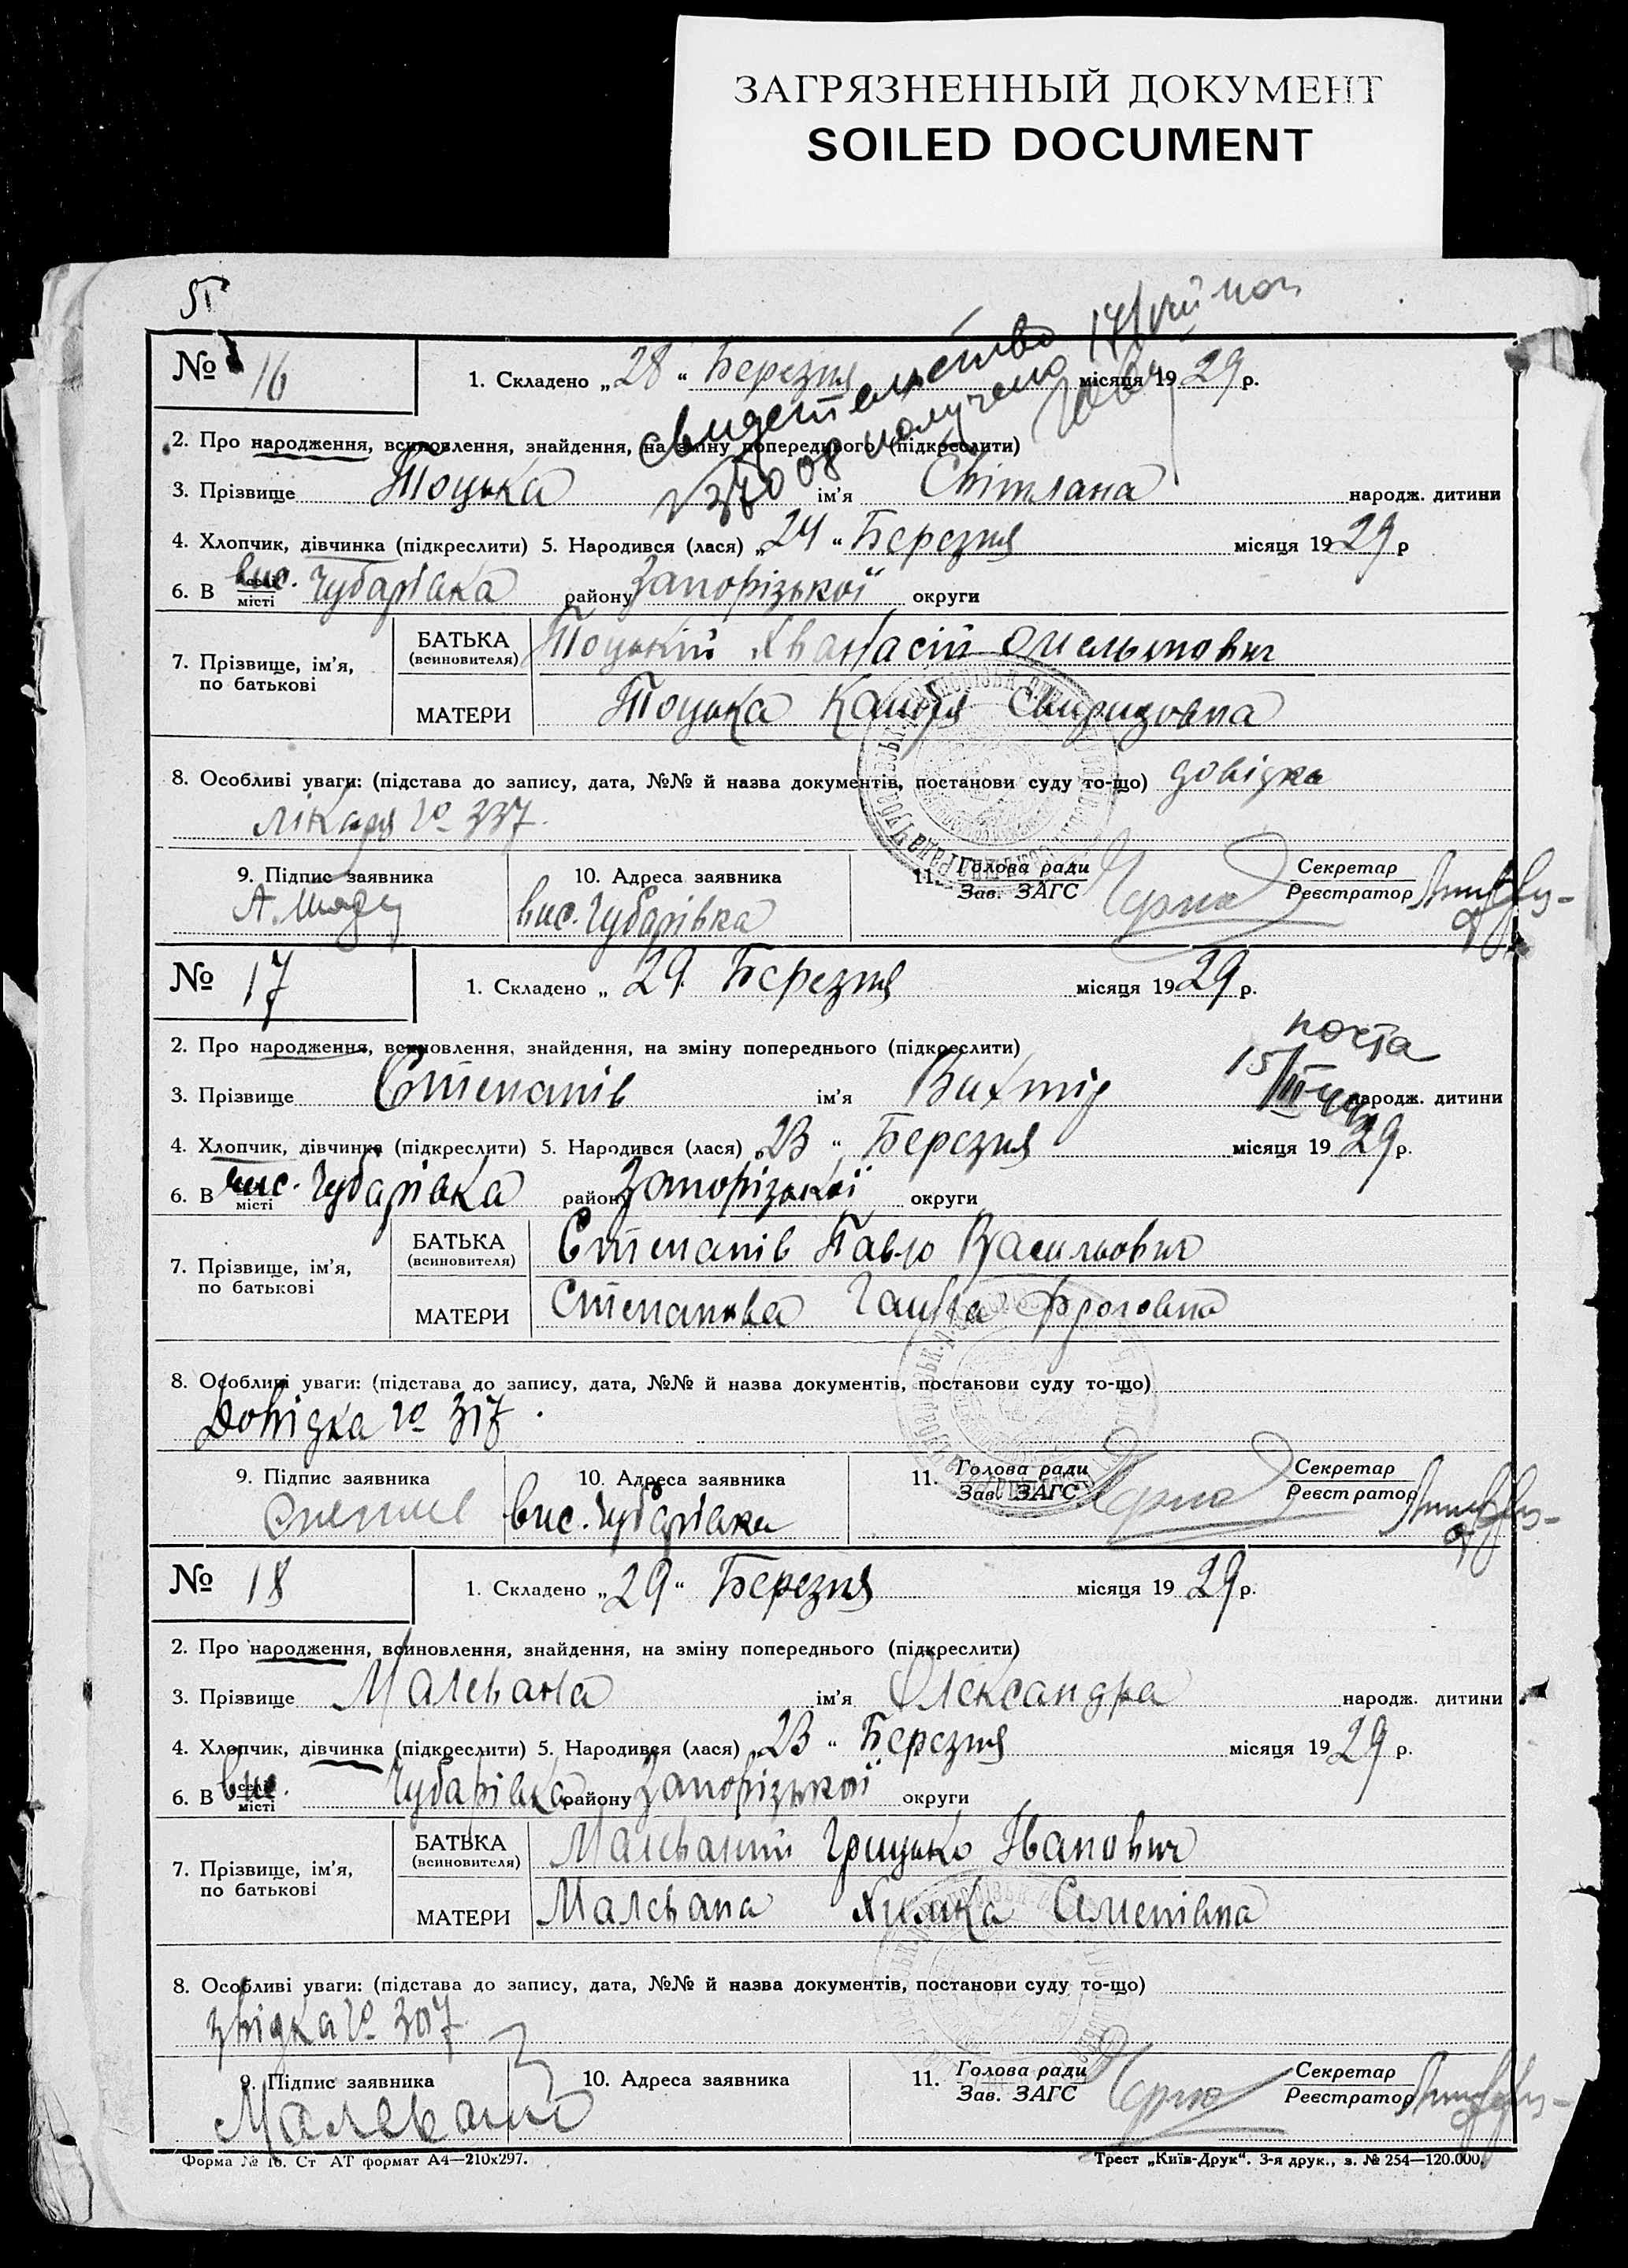 ЗАГРЯЗНЕННЫЙ ДОКУМЕНТ
SOILED DOCUMENT
№ 16
1. Складено „28“ Березня місяця 1929 р.
свидетельство
получено
2. Про народження, всиновлення, знайдення, на зміну попереднього (підкреслити)
3. Прізвище Тоцька ім'я Світлана народж. дитини
4. Хлопчик, дівчинка (підкреслити) 5. Народився (лася) „24“ Березня місяця 1929 р
6. В вис. селі місті Чубарівка району Запорізької округи
7. Прізвище, ім'я, по батькові
БАТЬКА (всиновителя) Тоцький Аванасій Омельянович
МАТЕРИ Тоцька Свиридовна
8. Особливі уваги: (підстава до запису, дата, №№ й назва документів, постанови суду то-що) довідка
лікаря № 337.
9. Підпис заявника
10. Адреса заявника
вис. Чубарівка
11. Голова ради
Зав. ЗАГС
Секретар
Реєстратор
№ 17
1. Складено „29. Березня місяця 1929 р.
2. Про народження, всиновлення, знайдення, на зміну попереднього (підкреслити)
почта
3. Прізвище Степанів ім'я народж. дитини
4. Хлопчик, дівчинка (підкреслити) 5. Народився (лася) „23“ Березня місяця 1929 р.
6. В вис. місті Чубарівка району Запорізької округи
7. Прізвище, ім'я, по батькові
БАТЬКА (всиновителя) Степанів Павло Васильович
МАТЕРИ Степанова Ганна
8. Особливі уваги: (підстава до запису, дата, №№ й назва документів, постанови суду то-що)
Довідка № 317.
9. Підпис заявника
10. Адреса заявника
вис. Чубарівка
11. Голова ради
Зав. ЗАГС
Секретар
Реєстратор
№ 18
1. Складено „29“ Березня місяця 1929 р.
2. Про народження, всиновлення, знайдення, на зміну попереднього (підкреслити)
3. Прізвище Малевана ім'я Олександра народж. дитини
4. Хлопчик, дівчинка (підкреслити) 5. Народився (лася) „23“ Березня місяця 1929 р.
6. В вис. селі місті Чубарівка району Запорізької округи
7. Прізвище, ім'я, по батькові
БАТЬКА (всиновителя) Малеваний Грицько Іванович
МАТЕРИ Малевана Химка Семенівна
8. Особливі уваги: (підстава до запису, дата, №№ й назва документів, постанови суду то-що)
№ 307
9. Підпис заявника
10. Адреса заявника
11. Голова ради
Зав. ЗАГС
Секретар
Реєстратор
Форма № 16. Ст АТ формат А4—210х297.
Трест „Київ-Друк“. 3-я друк., з. № 254—120.000.